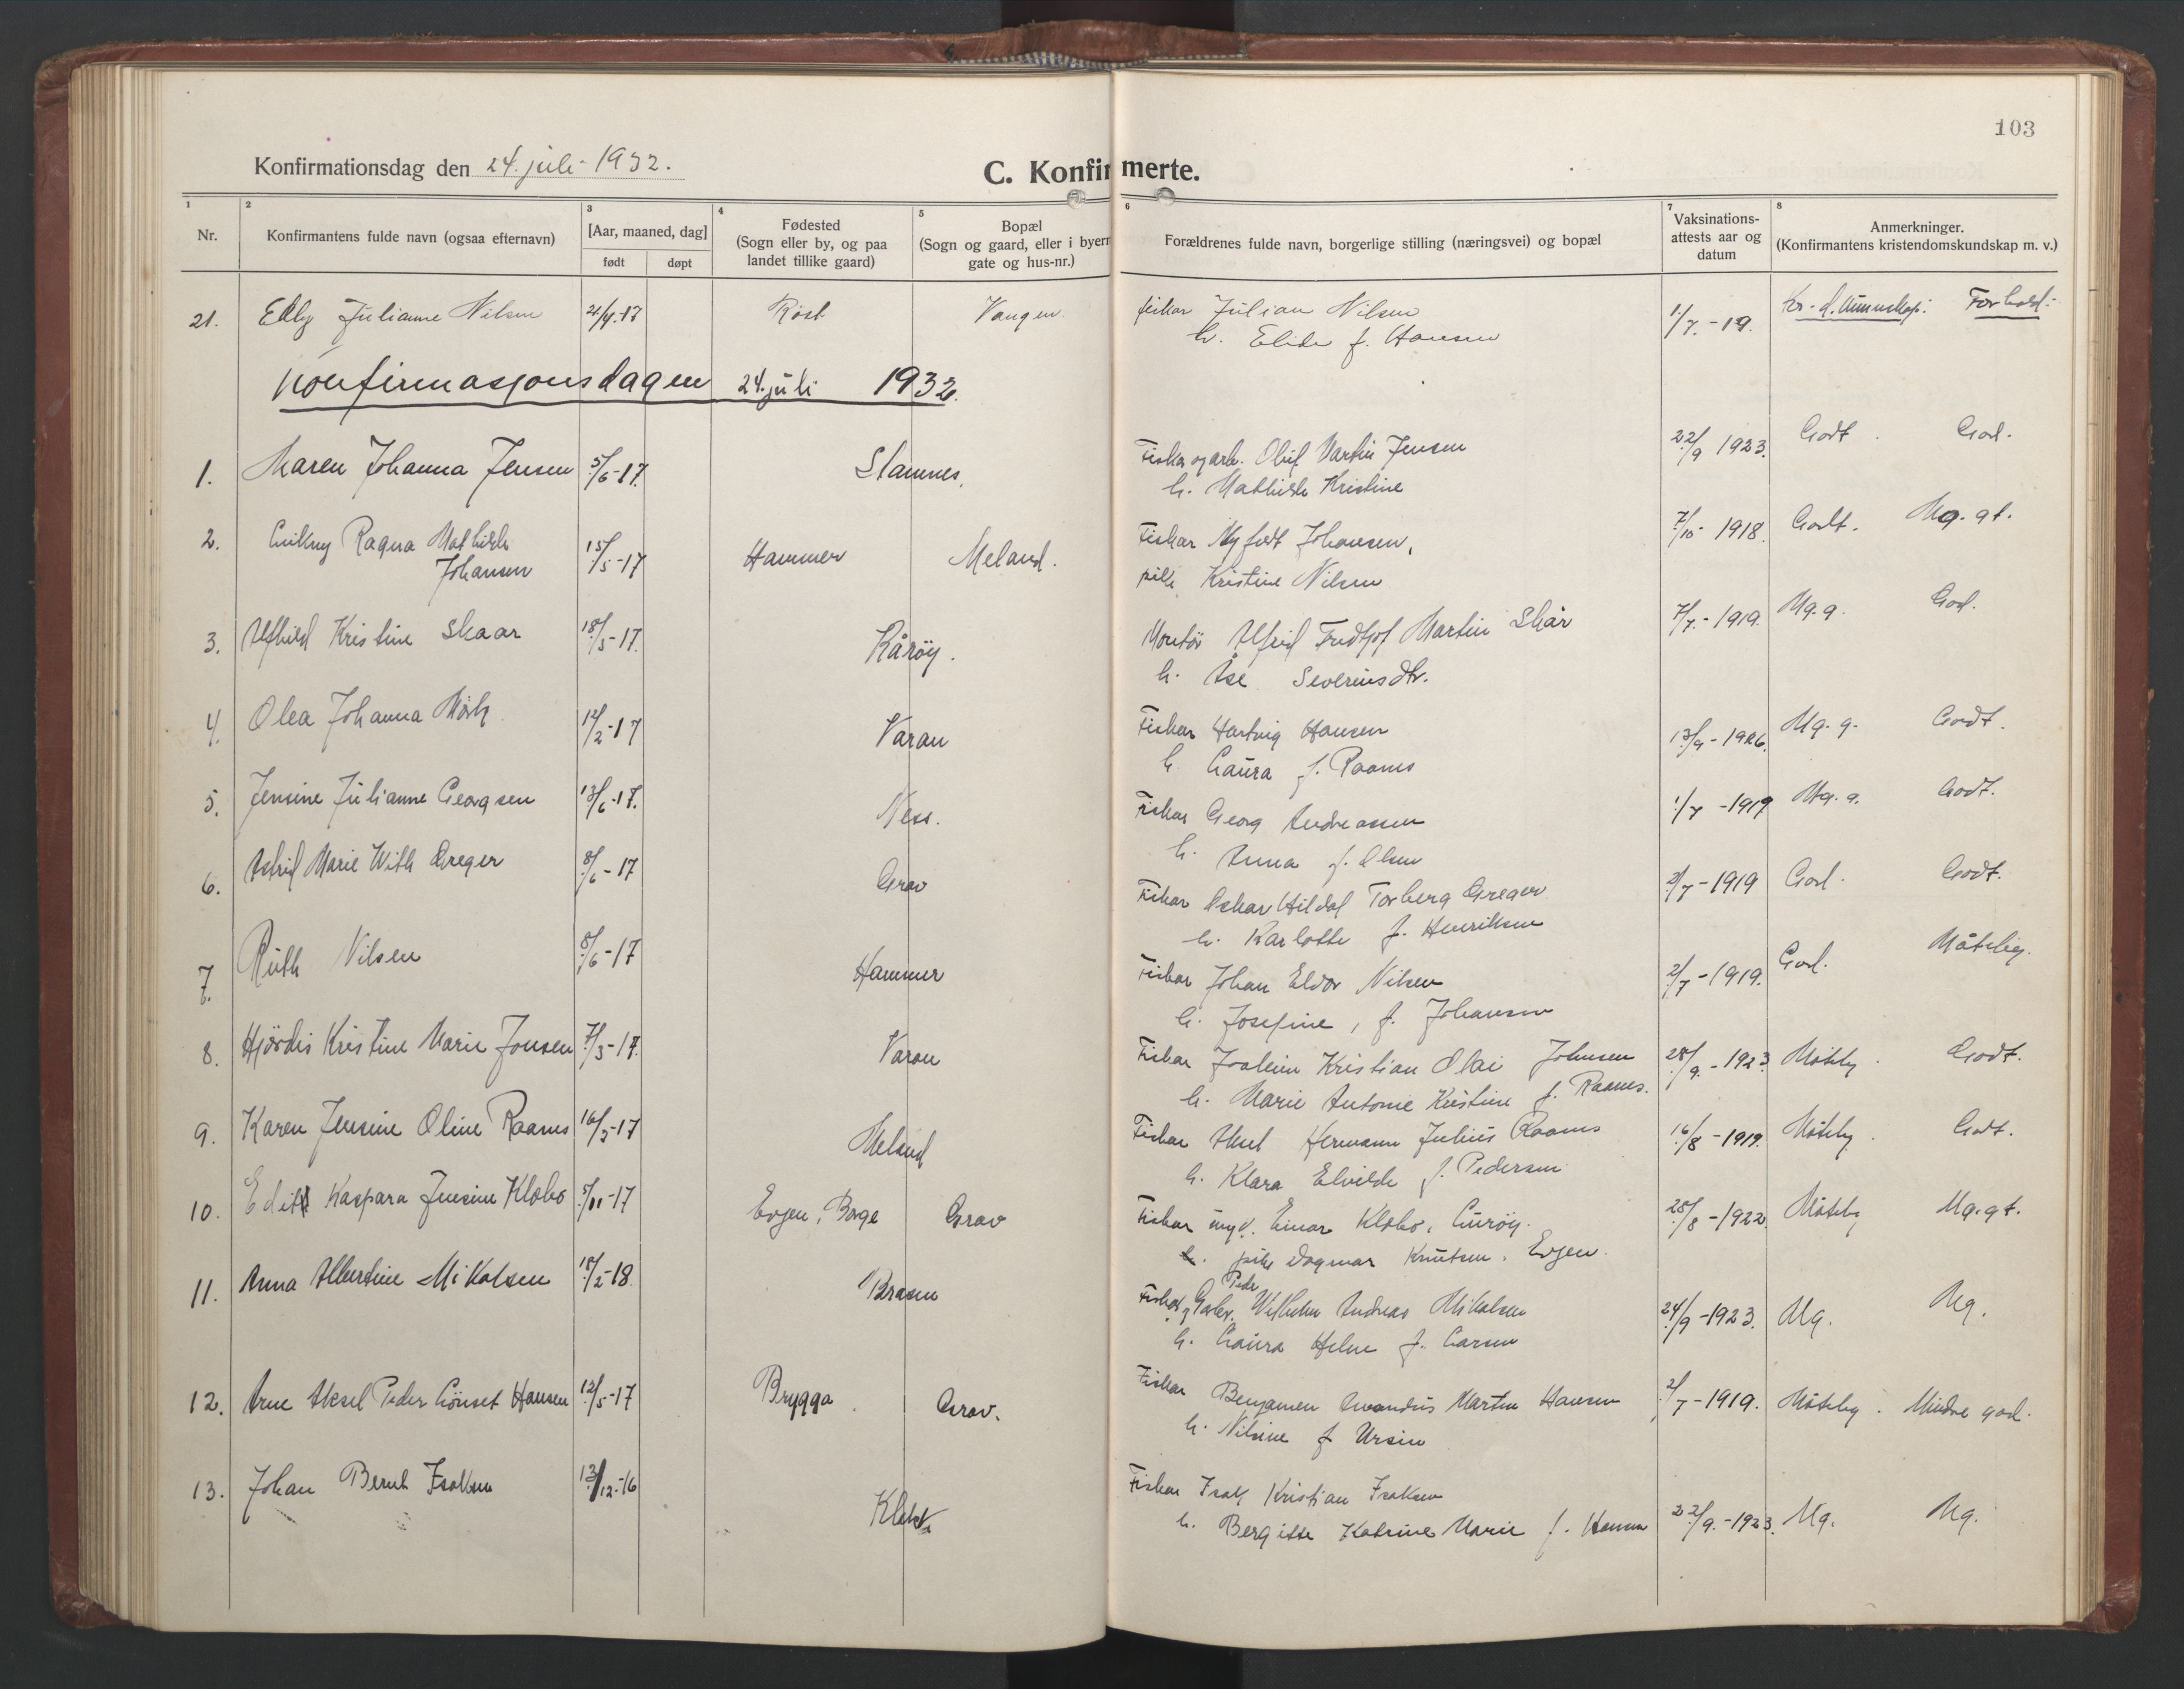 103
Konfirmationsdag den 24. juli - 1932.
C. Konfirmerte.
1 2 3 4 5 6 7 8
Nr.
Konfirmantens fulde navn (ogsaa efternavn)
[Aar, maaned, dag]
født døpt
Fødested
(Sogn eller by, og paa
landet tillike gaard)
Bopæl
(Sogn og gaard, eller i byern
gate og hus-nr.)
Forældrenes fulde navn, borgerlige stilling (næringsvei) og bopæl
Vaksinations-
attests aar og
datum
Anmerkninger.
(Konfirmantens kristendomskundskap m. v.)
21. Julianne Nilsen Røst Vangen fiskar Julian Nilsen 1/7.-19. Forhold:
h. Elida f. Hansen
Konfirmasjonsdagen 24. juli 1932.
1. Maren Johanna Jensen 5/6-17. Stamnes. Fiskar og arb. Oluf Martin Jensen 22/9 1923. Godt. God.
h. Mathilde Kristine
2. Ragna Mathilde 15/5-17 Hammer Meland. Fiskar Nyfødt Johansen, 7/10- 1918. Godt. Mg. gt.
Johansen pike Kristine Nilsen
3. Alfhild Kristine Skaar 18/5-17. Kårøy. Montør Alfred Fredtjof Martin Skår 7/7.-1919. Mg.g. God.
h. Åse Severinsdtr.
4. Olea Johanna Mørk 12/2-17 Varan Fiskar Hartvig Hansen 13/9-1926. Mg.g. Godt.
h. Laura f. Raanes
5. Jensine Julianne Georgsen 13/6-17. Ness. Fiskar Georg Andreassen 1/7-1919 Mg.g. Godt.
h. Anna f. Olsen
6. Astrid Marie With Greger 8/6-17 Grav Fiskar Oskar Hildal Torberg Greger 2/7-1919 God. Godt.
h. Karlotte f. Henriksen
7. Ruth Nilsen 8/6-17 Hammer Fiskar Johan Eldor Nilsen 2/7-1919. God. Måtelig.
h. Josefine, f. Johansen
8. Hjørdis Kristine Marie Jonsen 7/3-17. Varan Fiskar Joakim Kristian Olai Johnsen 28/9.-1923 Måtelig. Godt.
h. Marie Antonie Kristine f. Raanes.
9. Karen Jensine Oline Raanes 16/5-17 Meland Fiskar Hermann Julius Raanes 16/8-1919. Måtelig. Godt.
h. Klara Elvilde f. Pedersen
10. Edith Kaspara Jensine Klobo 5/11-17 Evjen, Borge Grav Fiskar ung. Einar Klobo, Lurøy. 28/8-1922. Måtelig Mg.gt.
h. pike Dagmar Knutsen, Evjen.
11. Anna Albertine Mikalsen 18/2-18. Brasen Peder
Fiskar Wilhelm Andreas Mikalsen 24/9-1923. Mg. Mg.
h. Laura Helene f. Larsen
12. Arne Aksel Peder Lønset Hansen 12/5-17 Brygga Grav. Fiskar Benjamen Martin Hansen 2/7-1919. Måtelig. Mindre god.
h. Nilsine f Ursin
13. Johan Bernt Isaksen 13/12-16 Fiskar Isak Kristian Isaksen
h. Bergitte Katrine Marie f. 22/9.-1923. Mg. Mg.